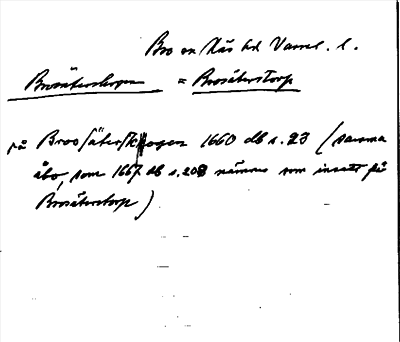 Bro sn Näs hd Värml. l.
Brosäterskogen = Brosäterstorp
på Broo säter sk ogen 1660 db s. 23 (samma
åbo, som 1667 db s. 208 nämnes som insatt på
Brosäterstorp)